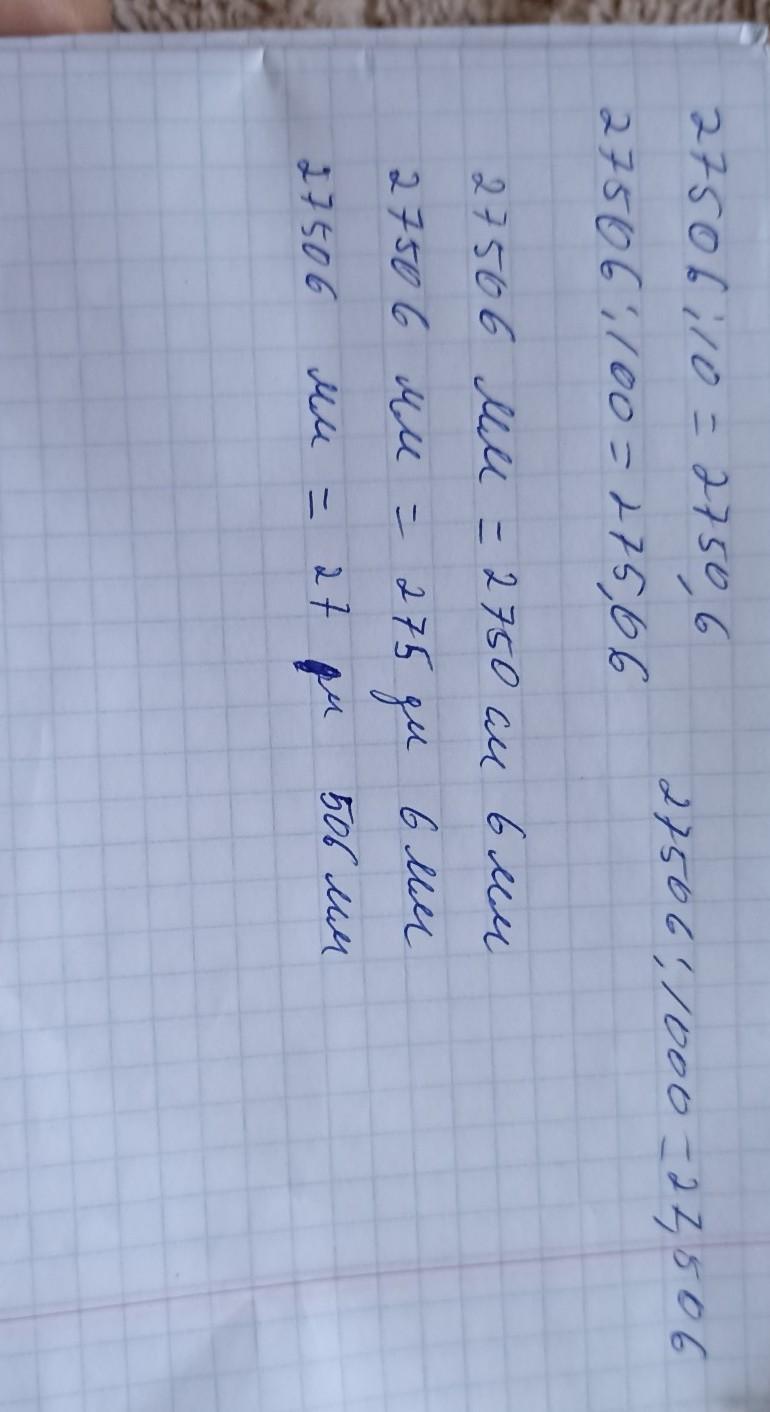 27506 : 10 = 2750,6
27506 : 100 = 275,06
27506 : 1000 = 27,506
27506 мм = 2750 см 6 мм
27506 мм = 275 дм 6 мм
27506 мм = 27 м 506 мм